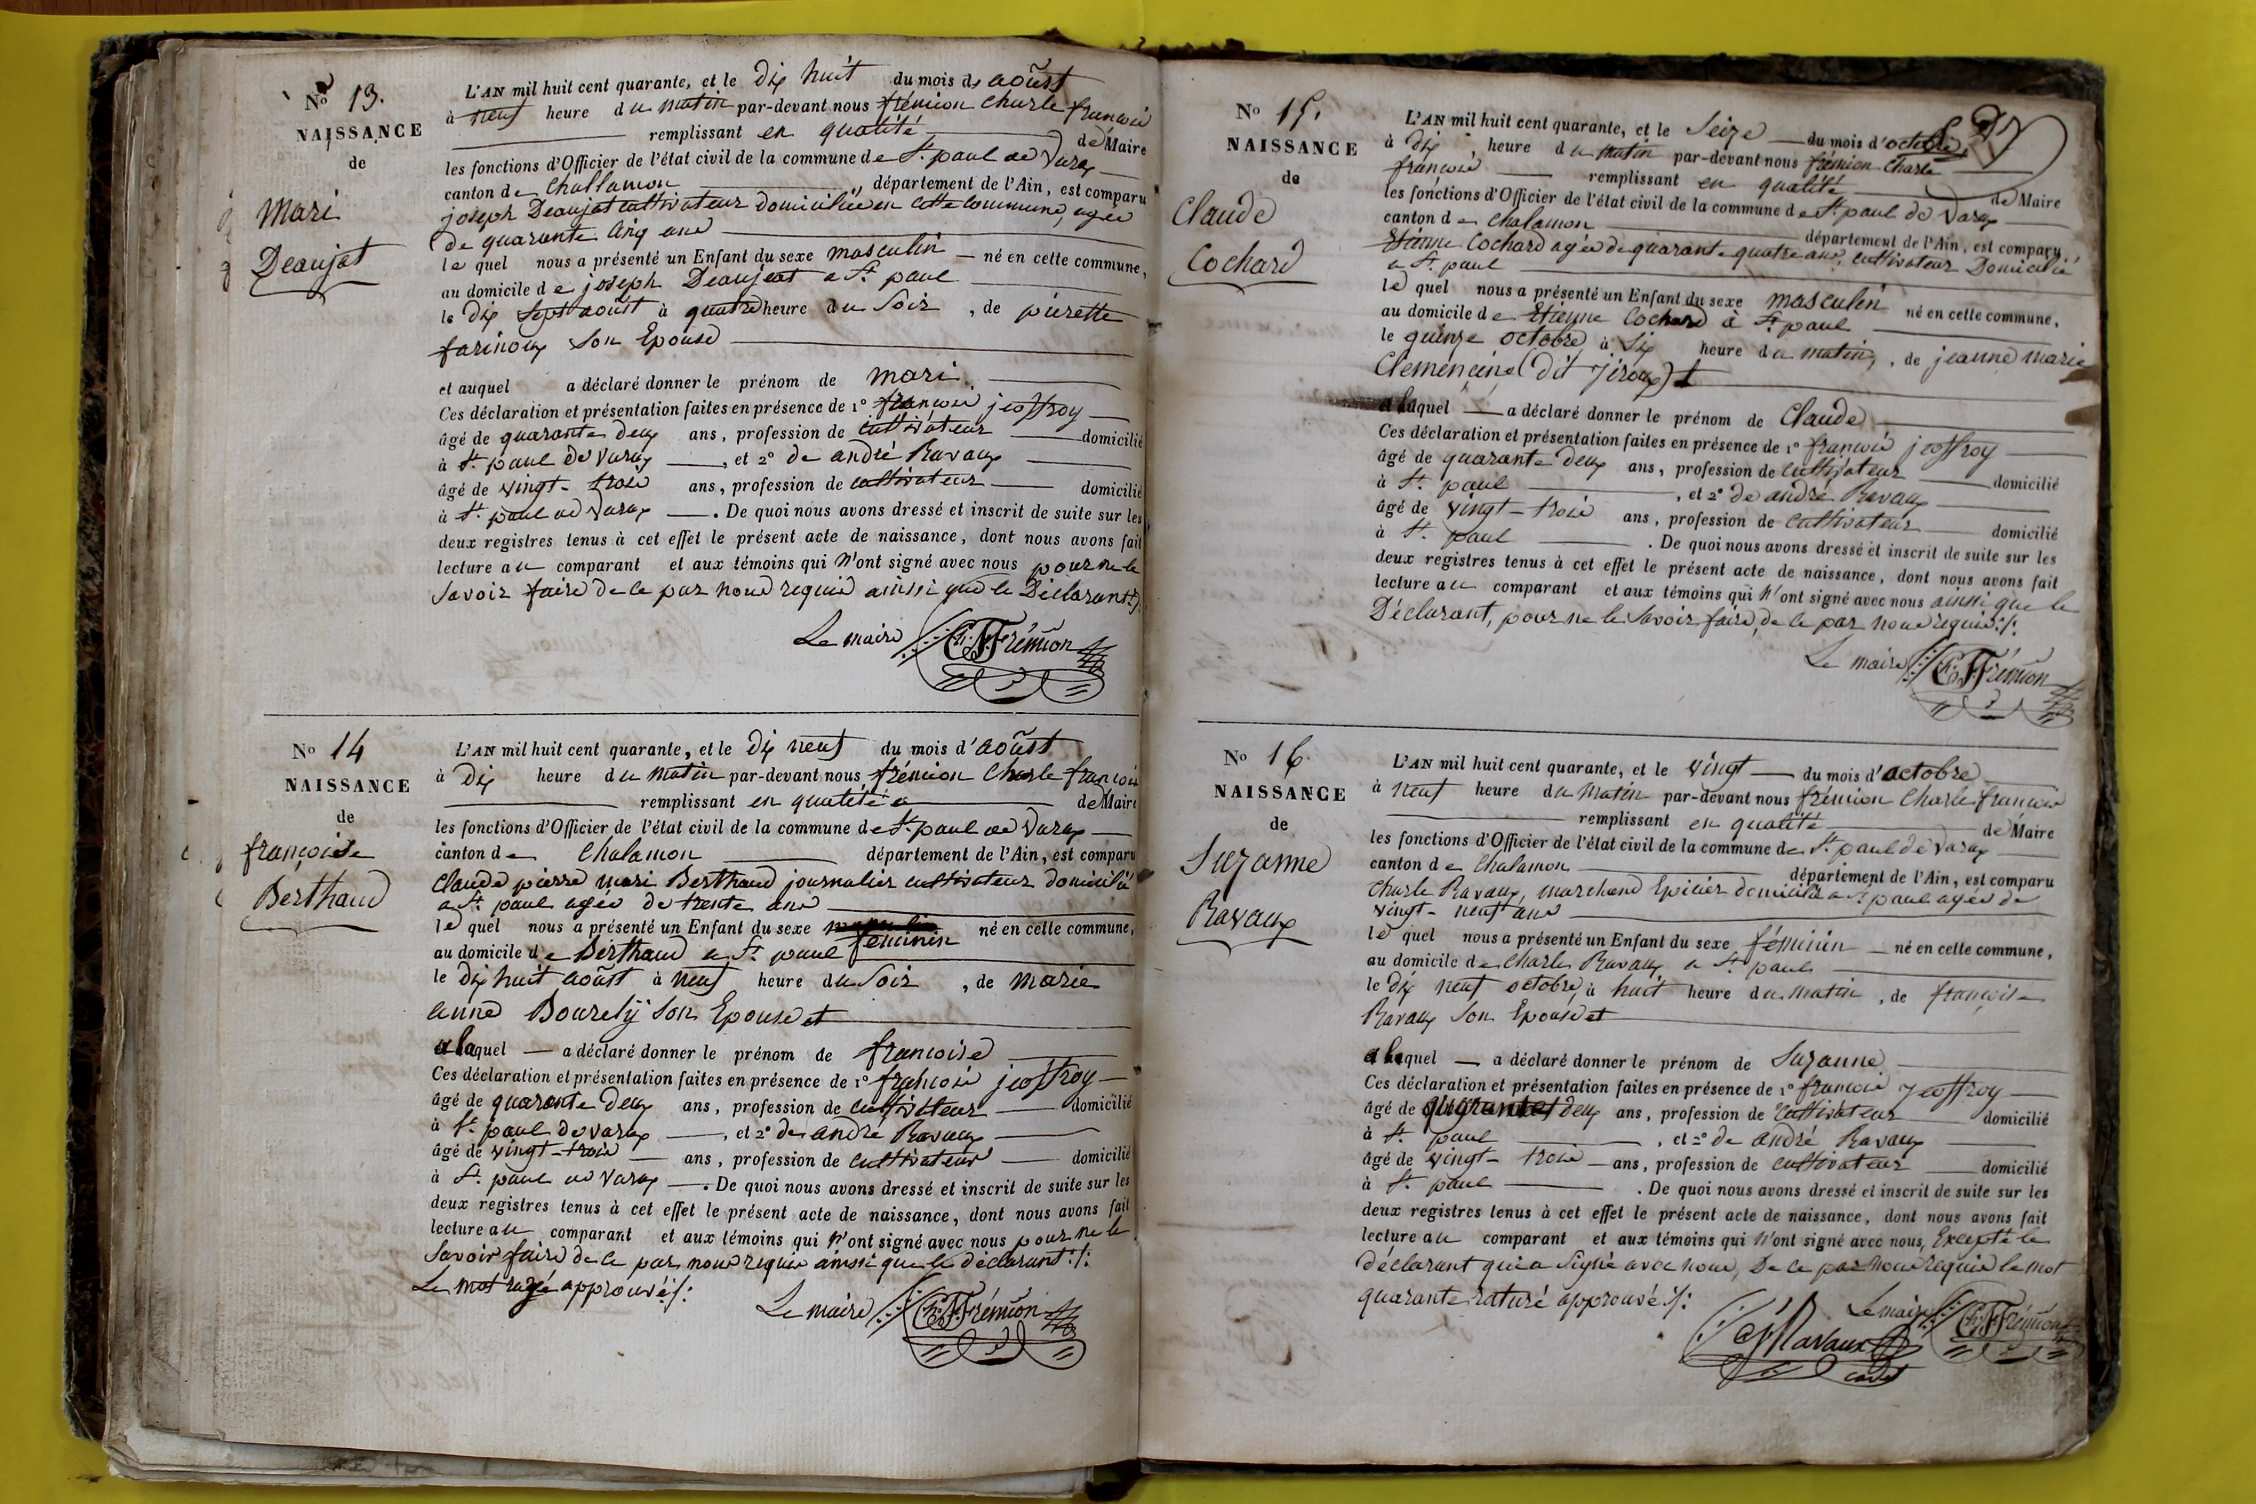 No 13.
NAISSANCE
de
Mari
Deaujat
L'AN mil huit cent quarante, et le dix huit du mois de aoûst
à neuf heure du matin par-devant nous frémion Charle françois
remplissant en qualité de Maire
les fonctions d'Officier de l'état civil de la commune de St. paul de Varax
canton de Challamon, département de l'Ain, est comparu
joseph Deaujat cultivateur domicilié en cette commune, agée
de quarante cinq ans
le quel nous a présenté un Enfant du sexe masculin né en cette commune,
au domicile de joseph Deaujeat a St. paul
le dix sept aoûst à quatre heure du soir, de pierette
farinoux son Epouse
et auquel a déclaré donner le prénom de mari.
Ces déclaration et présentation faites en présence de 1° françois jeoffroy
âgé de quarante deux ans, profession de cultivateur domicilié
à St. paul de Varax, et 2° de andré Ravaux
âgé de vingt-trois ans, profession de cultivateur domicilié
à St. paul de Varax. De quoi nous avons dressé et inscrit de suite sur les
deux registres tenus à cet effet le présent acte de naissance, dont nous avons fait
lecture au comparant et aux témoins qui n'ont signé avec nous pour ne le
savoir faire de ce par nous requis ainsi que le Déclarant ./.
Le maire Ch. F. Frémion
No 14
NAISSANCE
de
françoise
Berthaud
L'AN mil huit cent quarante, et le dix neuf du mois d'aoûst
à dix heure du matin par-devant nous frémion Charle françois
remplissant en qualité de Maire
les fonctions d'Officier de l'état civil de la commune de St. paul de Varax
canton de Chalamon département de l'Ain, est comparu
Claude pierre mari Berthaud journalier cultivateur domicilié
a St. paul agée de trente ans
le quel nous a présenté un Enfant du sexe féminin né en cette commune,
au domicile de Berthaud a St. paul
le dix huit aoûst à neuf heure du soir, de marie
anne Bourdij son Epouse et
a laquel a déclaré donner le prénom de françoise
Ces déclaration et présentation faites en présence de 1° françois jeoffroy
âgé de quarante deux ans, profession de cultivateur domicilié
à St. paul de varax, et 2° de andré Ravaux
âgé de vingt-trois ans, profession de cultivateur domicilié
à St. paul de Varax. De quoi nous avons dressé et inscrit de suite sur les
deux registres tenus à cet effet le présent acte de naissance, dont nous avons fait
lecture au comparant et aux témoins qui n'ont signé avec nous pour ne le
savoir faire de ce par nous requis ainsi que le déclarant ./.
Le mot rayé approuvé ./.
Le maire Ch. F. Frémion
No 15.
NAISSANCE
de
Claude
Cochard
L'AN mil huit cent quarante, et le seize du mois d'octobre
à dix heure du matin par-devant nous frémion Charle
françois remplissant en qualité de Maire
les fonctions d'Officier de l'état civil de la commune de St. paul de Varax
canton de Chalamon département de l'Ain, est comparu
Etienne Cochard agée de quarante quatre ans, cultivateur Domicilié
a St. paul
le quel nous a présenté un Enfant du sexe masculin né en cette commune,
au domicile de Etienne Cochard à St. paul
le quinze octobre à six heure du matin, de jeanne marie
Clemencine (dit jiroux) et
a laquel a déclaré donner le prénom de Claude
Ces déclaration et présentation faites en présence de 1° françois jeoffroy
âgé de quarante deux ans, profession de cultivateur domicilié
à St. paul, et 2° de andré Ravaux
âgé de vingt-trois ans, profession de cultivateur domicilié
à St. paul. De quoi nous avons dressé et inscrit de suite sur les
deux registres tenus à cet effet le présent acte de naissance, dont nous avons fait
lecture au comparant et aux témoins qui n'ont signé avec nous ainsi que le
Déclarant, pour ne le savoir faire, de ce par nous requis ./.
Le maire Ch. F. Frémion
No 16.
NAISSANCE
de
Suzanne
Ravaux
L'AN mil huit cent quarante, et le vingt du mois d'octobre
à neuf heure du matin par-devant nous frémion Charle françois
remplissant en qualité de Maire
les fonctions d'Officier de l'état civil de la commune de St. paul de Varax
canton de Chalamon département de l'Ain, est comparu
Charle Ravaux, marchand Epicier domicilié a St. paul agée de
vingt-neuf ans
le quel nous a présenté un Enfant du sexe féminin né en cette commune,
au domicile de Charle Ravaux a St. paul
le dix neuf octobre, à huit heure du matin, de françoise
Ravaux son Epouse et
a laquel a déclaré donner le prénom de Suzanne
Ces déclaration et présentation faites en présence de 1° françois jeoffroy
âgé de quarante deux ans, profession de cultivateur domicilié
à St. paul, et 2° de andré Ravaux
âgé de vingt-trois ans, profession de cultivateur domicilié
à St. paul. De quoi nous avons dressé et inscrit de suite sur les
deux registres tenus à cet effet le présent acte de naissance, dont nous avons fait
lecture au comparant et aux témoins qui n'ont signé avec nous, Excepté le
déclarant qui a signé avec nous, De ce par nous requis le mot
quarante raturé approuvé ./.
Le maire Ch. F. Frémion
Ravaux
cadet